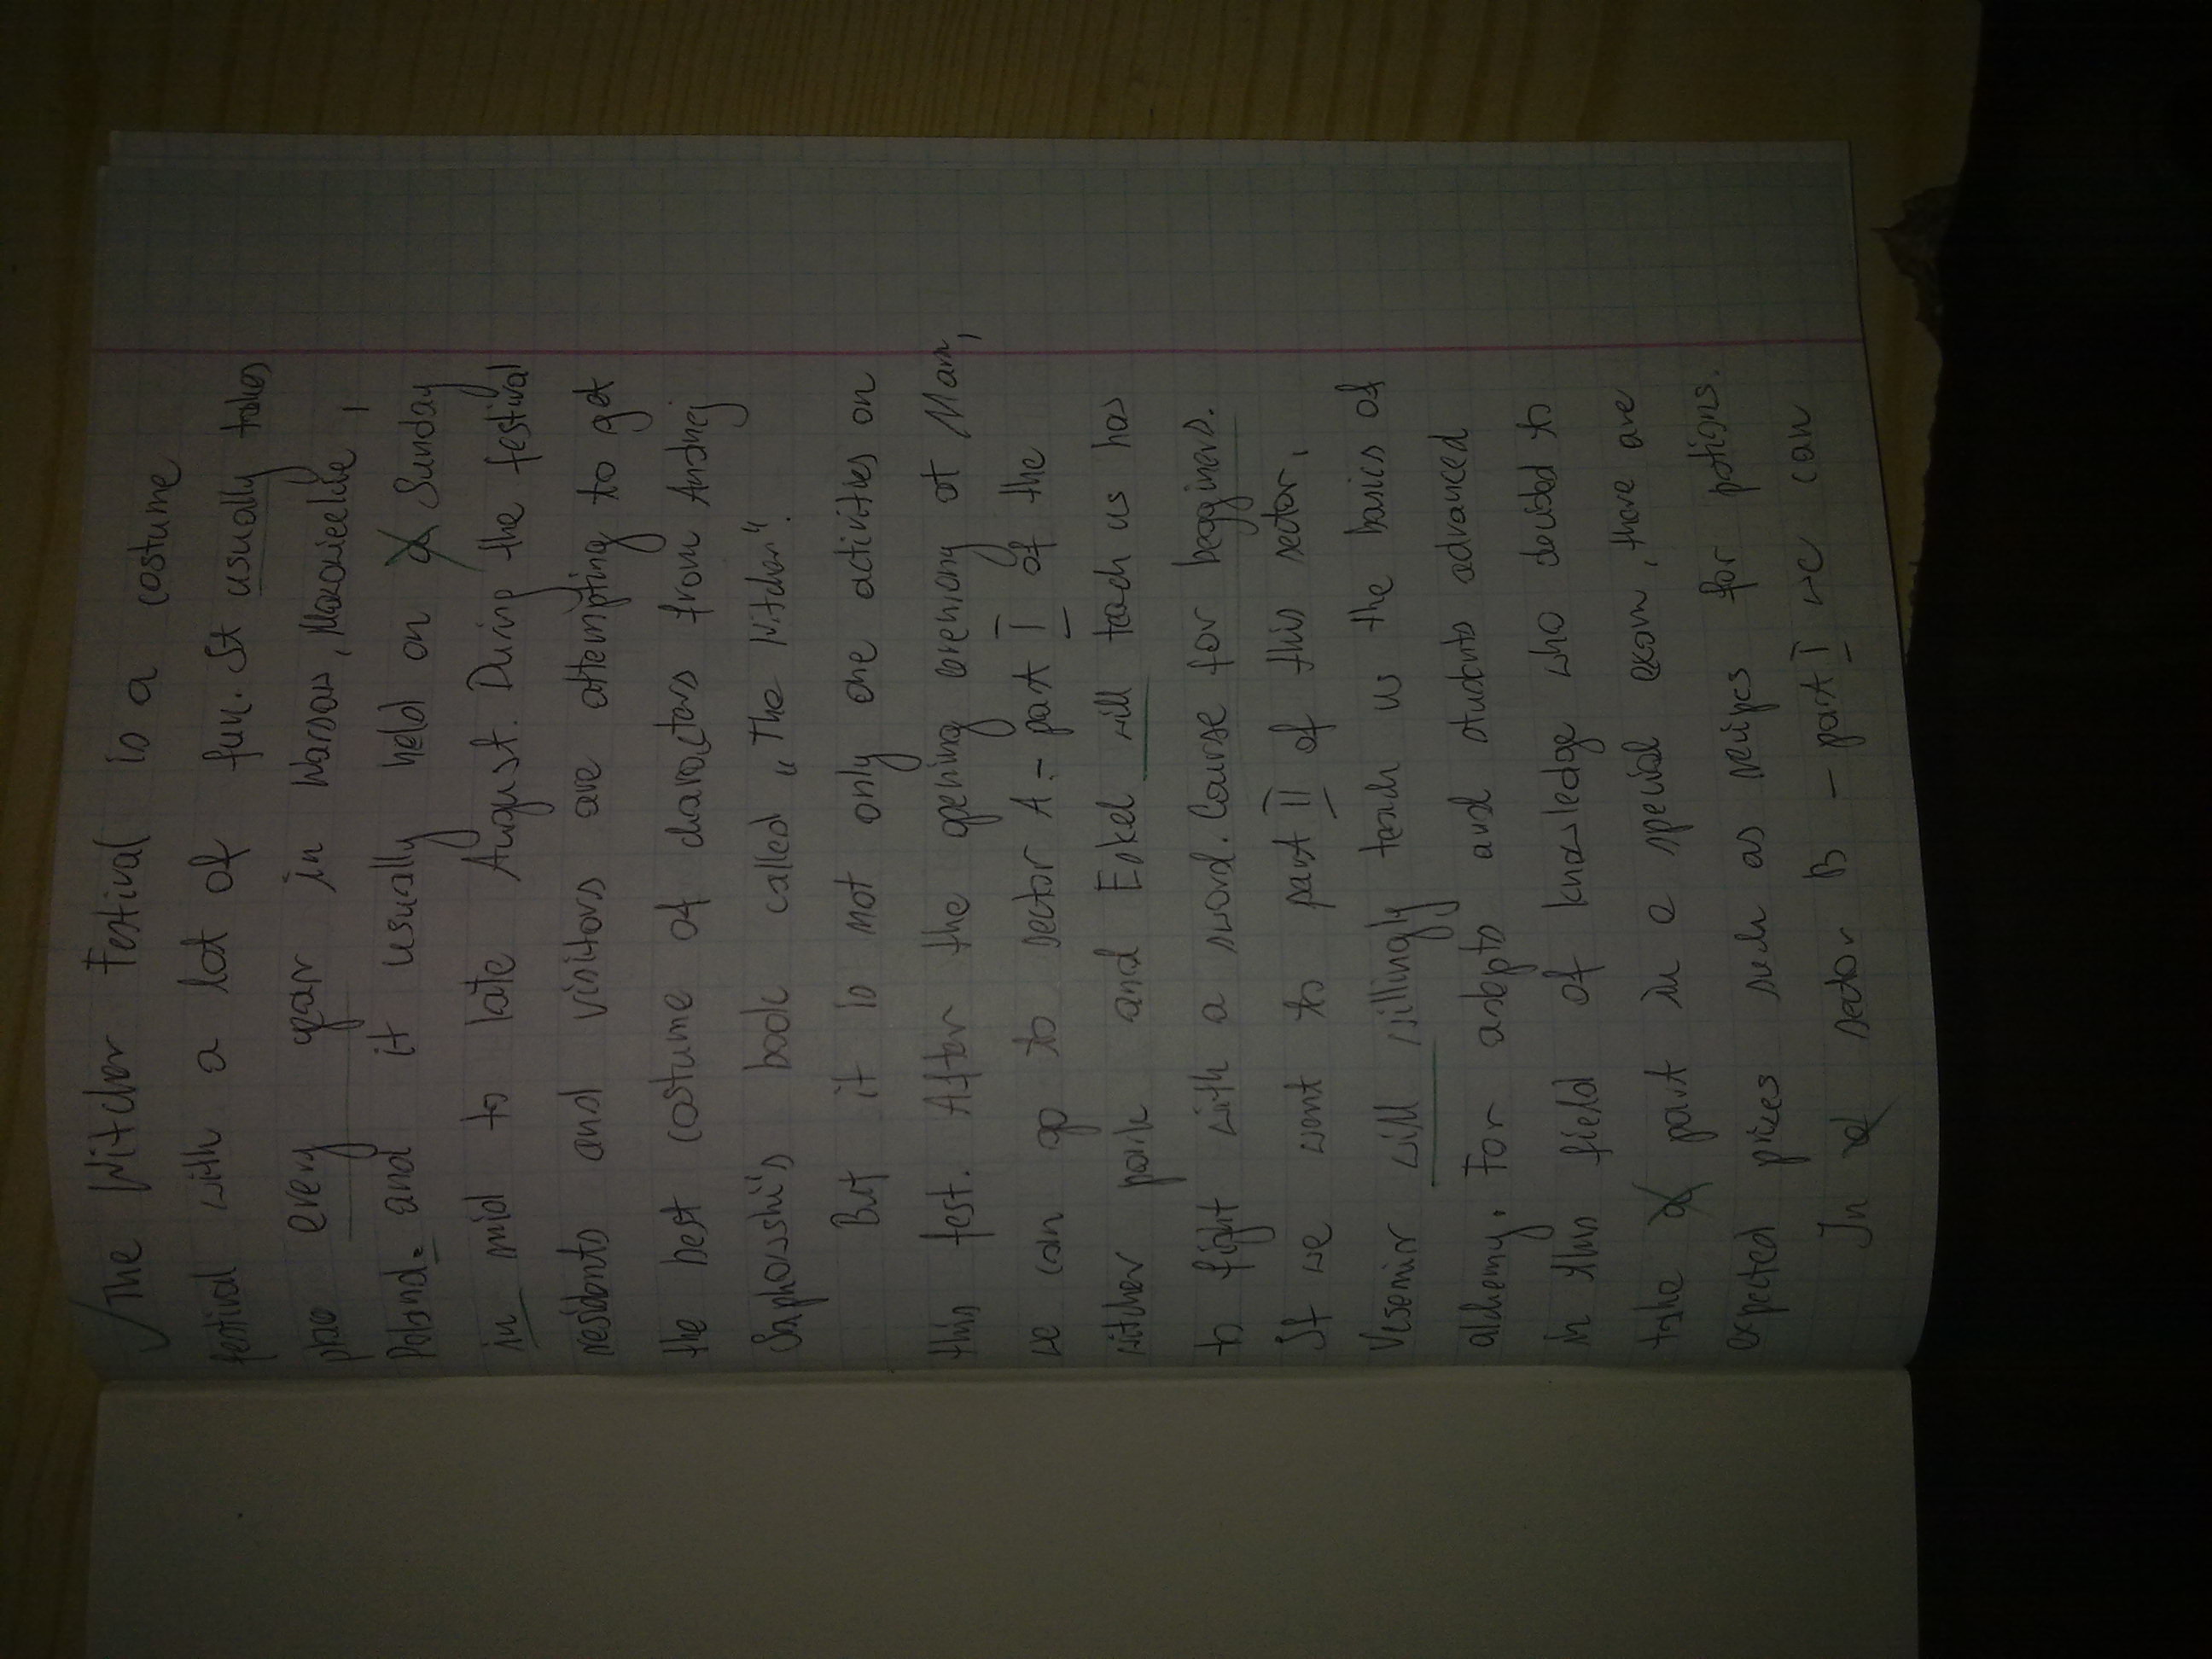 The Witcher Festival is a costume
festival with a lot of fun. It usually takes
place every year in Warsaw, Mazowieckie,
Poland. and it usually held on a Sunday
in mid to late August. During the festival
residents and visitors are attempting to get
the best costume of characters from Andrzej
Sapkowski's book called „The Witcher".
But it is not only one activities on
this fest. After the opening ceremony at
we can go to sector A - part I of the
witcher park and Eskel will teach us has
to fight with a sword. Course for begginers.
If we want to part II of this sector,
Vesemir will willingly teach us the basics of
alchemy. For adepts and students advanced
in this field of knowledge who decided to
take a part in a special exam, there are
expected prizes such as recipes for potions.
In a sector B - part I we can